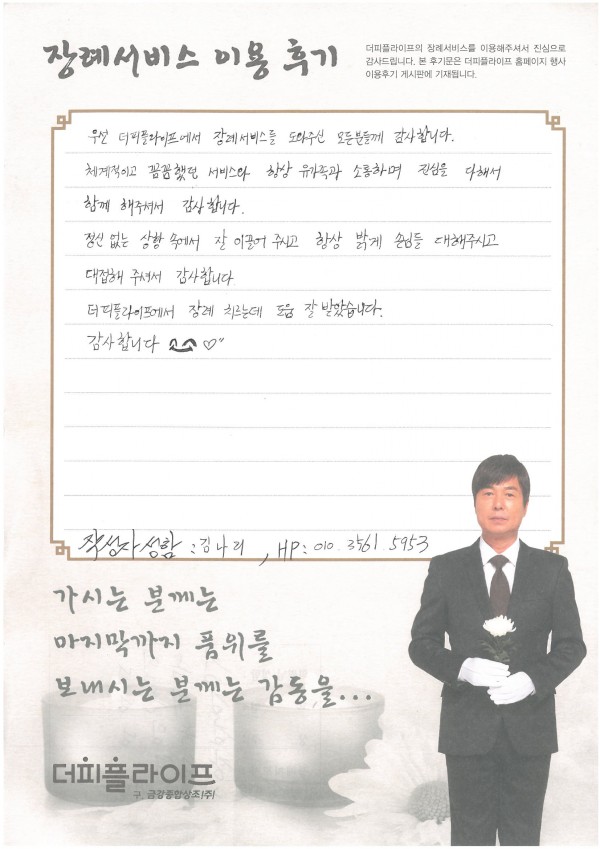 장례서비스 이용 후기
더피플라이프의 장례서비스를 이용해주셔서 진심으로
감사드립니다. 본 후기문은 더피플라이프 홈페이지 행사
이용후기 게시판에 기재됩니다.
우선 더피플라이프에서 장례서비스를 도와주신 모든분들께 감사합니다.
체계적이고 꼼꼼했던 서비스와 항상 유가족과 소통하며 진심을 다해서
함께 해주셔서 감사합니다.
정신 없는 상황 속에서 잘 이끌어 주시고 항상 밝게 손님들 대해주시고
대접해 주셔서 감사합니다
더피플라이프에서 장례 치르는데 도움 잘 받았습니다.
감사합니다 ♡"
작성자성함 : 김나리 , HP : 010. 3561. 5953
가시는 분께는
마지막까지 품위를
보내시는 분께는 감동을...
더피플라이프
구. 금강종합상조(주)